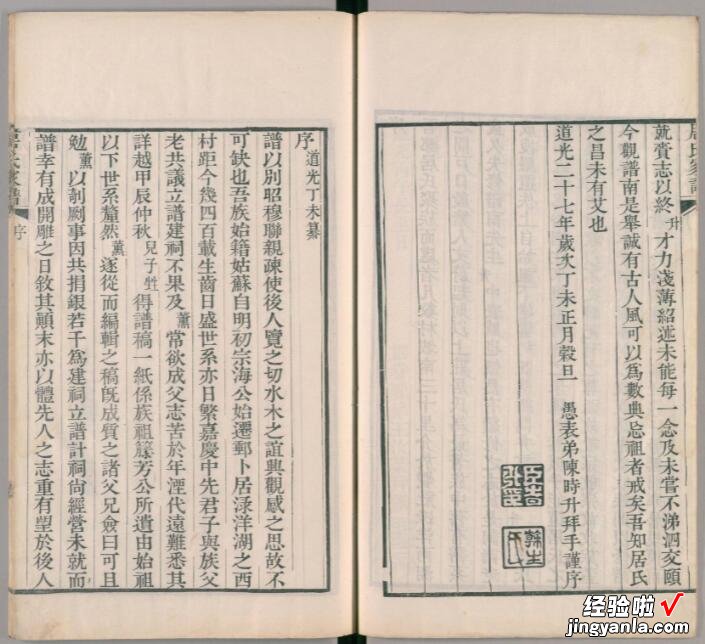 就賫志以終升才力淺薄紹述未能每一念及未嘗不涕泗交頤
今觀譜南是舉誠有古人風可以為數典忘祖者戒矣吾知居氏
之昌未有艾也
道光二十七年歲次丁未正月穀旦 愚表弟陳時升拜手謹序
序 道光丁未纂
譜以別昭穆聯親疎使後人覽之切水木之誼興觀感之思故不
可缺也吾族始籍姑蘇自明初宗海公始遷郵卜居淥洋湖之西
村距今幾四百載生齒日盛世系亦日繁嘉慶中先君子與族父
老共議立譜建祠不果及薰常欲成父志苦於年湮代遠難悉其
詳越甲辰仲秋兒子甡得譜稿一紙係族祖籐芳公所遺由始祖
以下世系釐然薰遂從而編輯之稿旣成質之諸父兄僉曰可且
勉薰以剞劂事因共捐銀若干為建祠立譜計祠尙經營未就而
譜幸有成開雕之日敘其顛末亦以體先人之志重有望於後人
居氏家譜
序
经验啦√
jingyanla.com